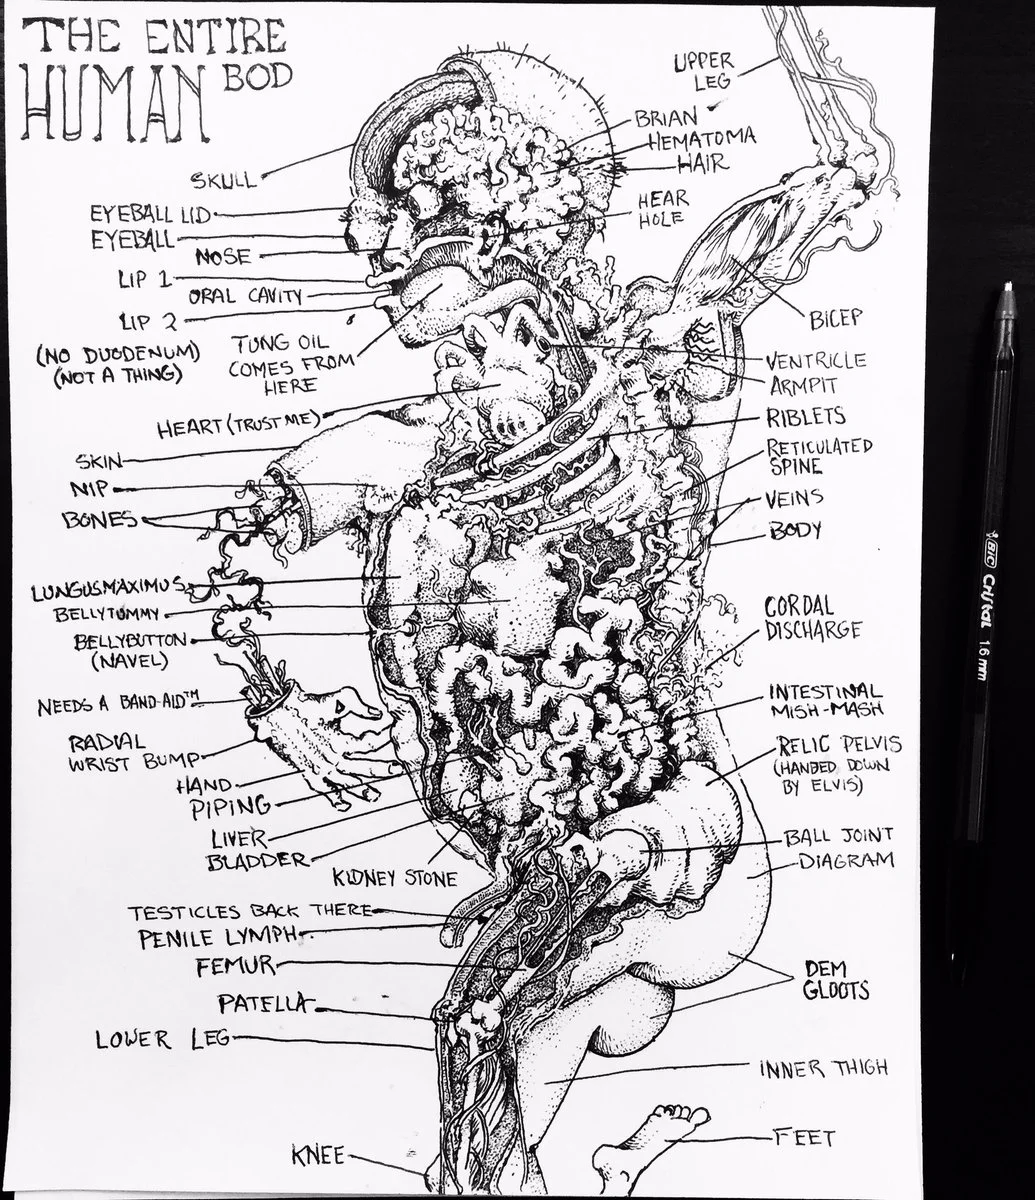 THE ENTIRE
HUMAN BOD
SKULL
EYEBALL LID
EYEBALL
NOSE
LIP 1
ORAL CAVITY
LIP 2
(NO DUODENUM)
(NOT A THING)
TUNG OIL
COMES FROM
HERE
HEART (TRUST ME)
SKIN
NIP
BONES
LUNGUSMAXIMUS
BELLYTUMMY
BELLYBUTTON
(NAVEL)
NEEDS A BAND-AID™
RADIAL
WRIST BUMP
HAND
PIPING
LIVER
BLADDER
KIDNEY STONE
TESTICLES BACK THERE
PENILE LYMPH
FEMUR
PATELLA
LOWER LEG
KNEE
UPPER
LEG
BRIAN
HEMATOMA
HAIR
HEAR
HOLE
BICEP
VENTRICLE
ARMPIT
RIBLETS
RETICULATED
SPINE
VEINS
BODY
CORDAL
DISCHARGE
INTESTINAL
MISH-MASH
RELIC PELVIS
(HANDED DOWN
BY ELVIS)
BALL JOINT
DIAGRAM
DEM
GLOOTS
INNER THIGH
FEET
BIC Cristal 1.6 mm